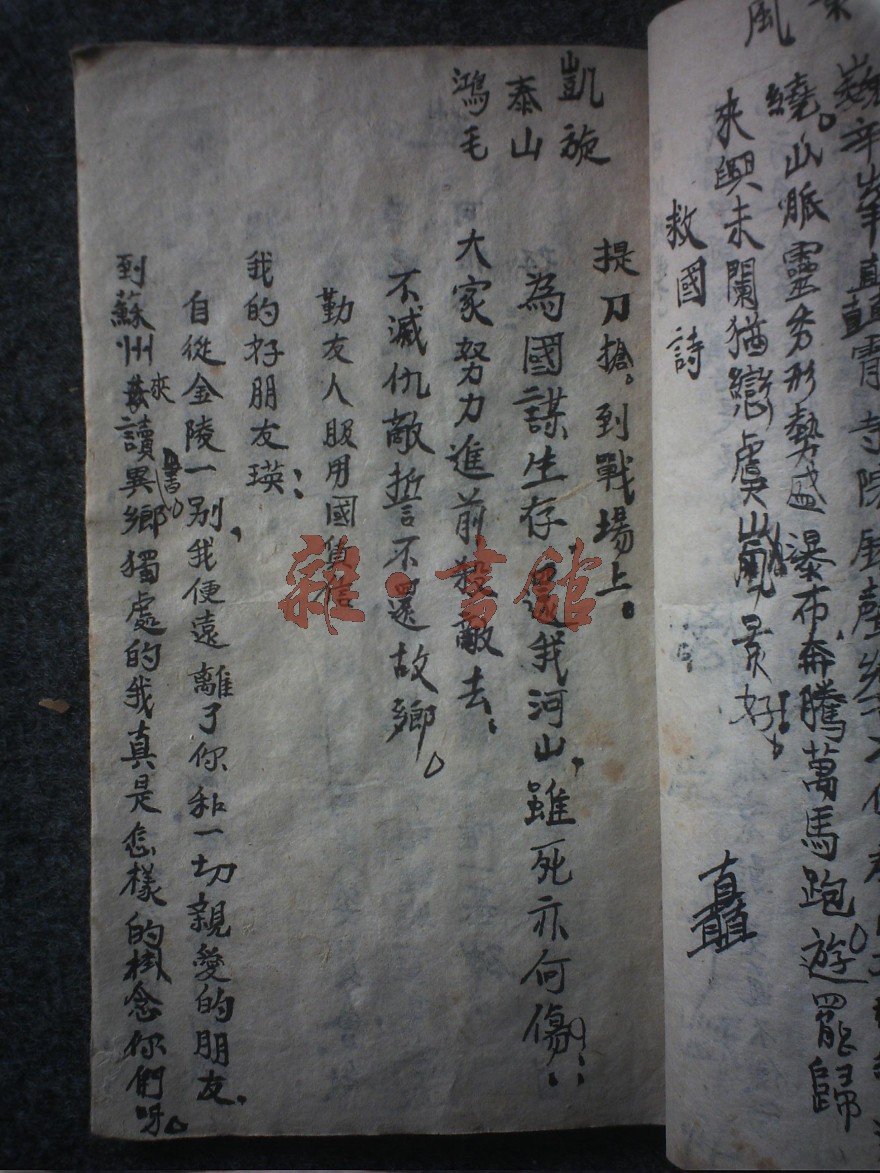 繞。山脈靈秀形勢盛瀑布奔騰萬馬跑遊罷歸
來興未闌猶戀虞山風景好!
救國詩
矗
凱旋
泰山
鴻毛
提刀搶。到戰場上。
為國謀生存,還我河山,雖死亦何傷!
大家努力進前殺敵去,
不滅仇敵誓不還故鄉。
勤友人服用國貨信
我的好朋友瑛:
自從金陵一別,我便遠離了你和一切親愛的朋友,
到蘇州來讀書異鄉獨處的我真是怎樣的掛念你們呀。
雜·書館